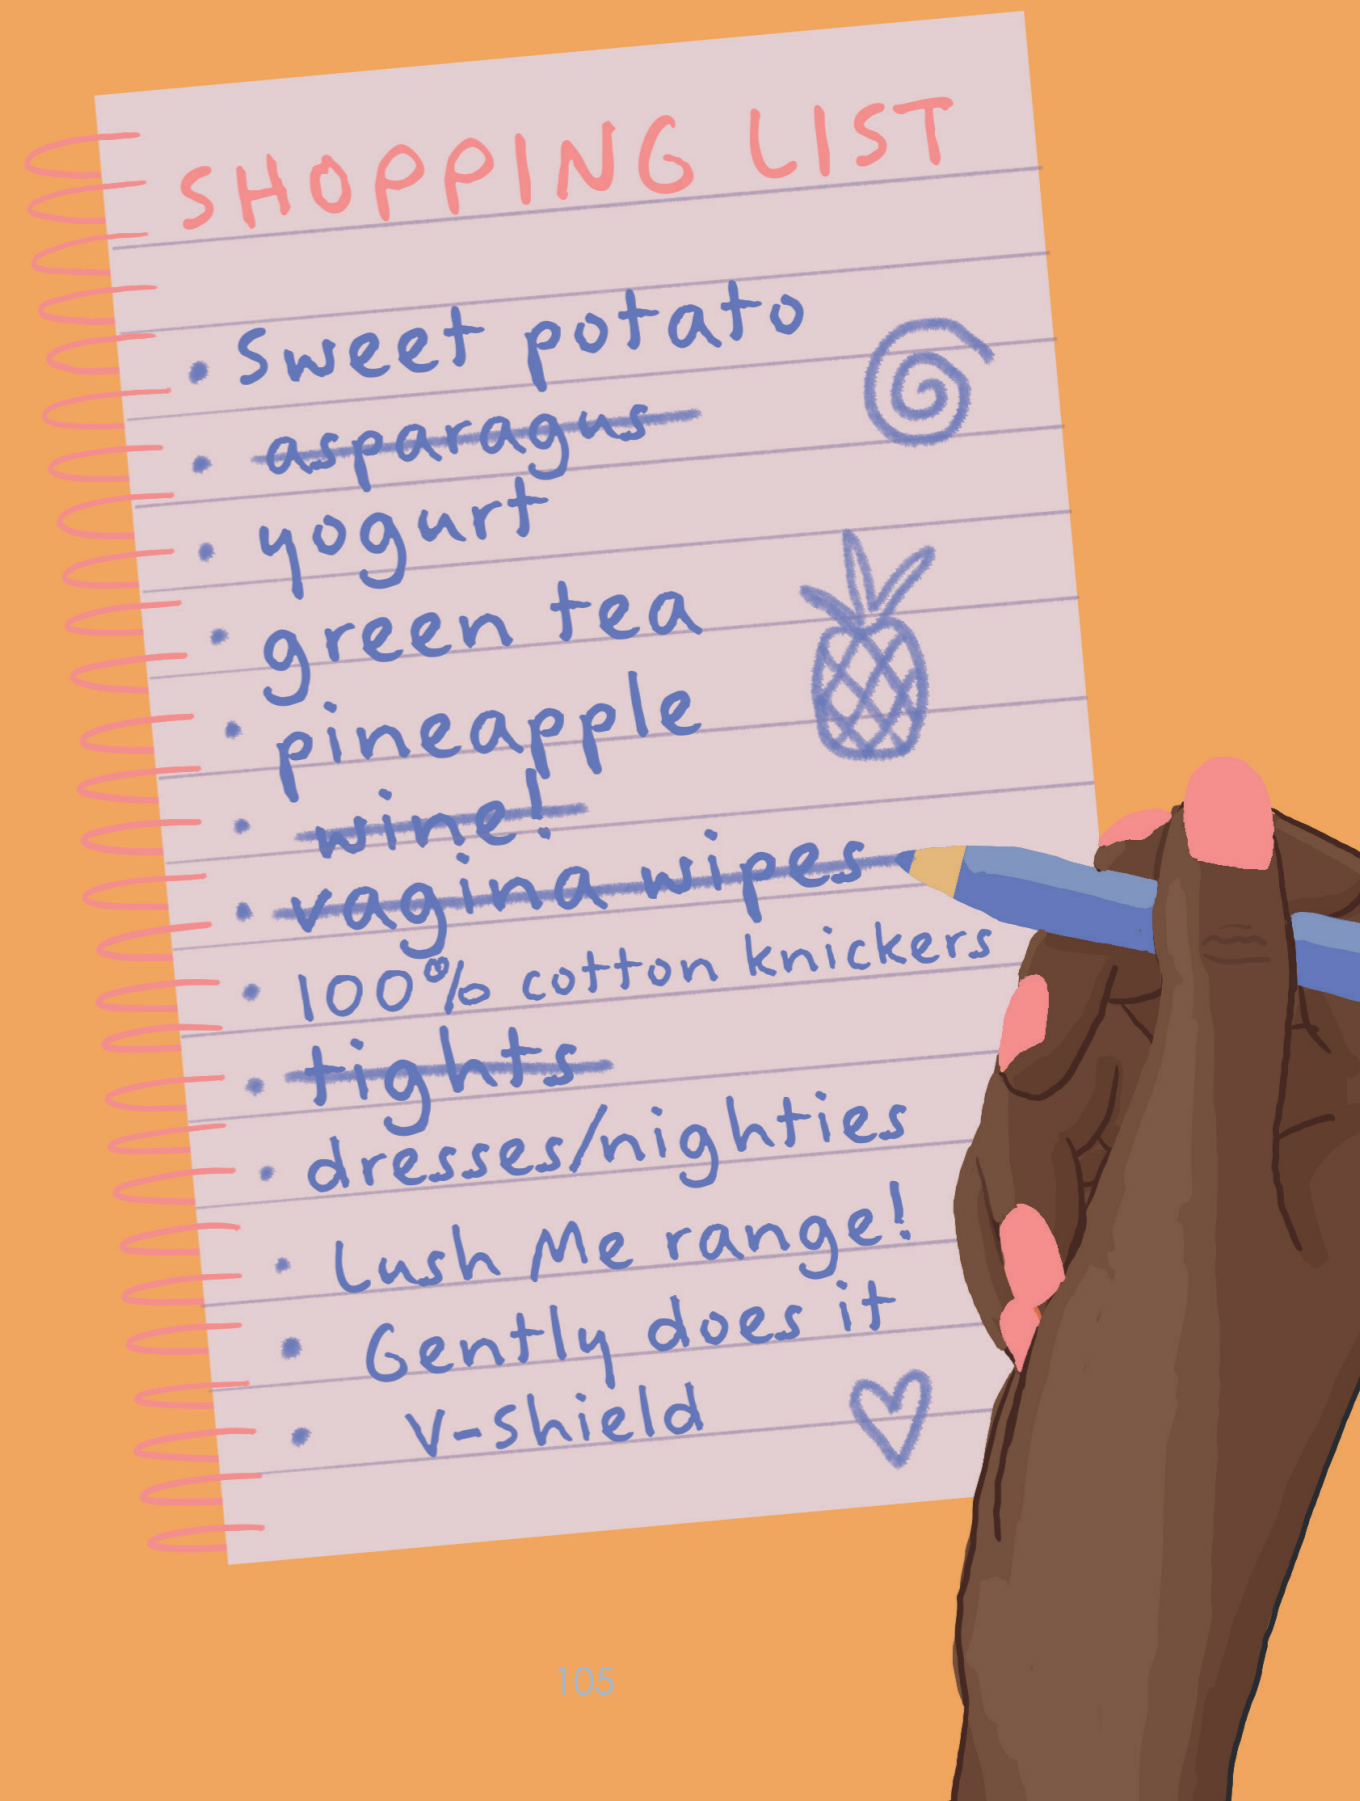 SHOPPING LIST
• Sweet potato
• asparagus
• yogurt
• green tea
• pineapple
• wine!
• vagina wipes
• 100% cotton knickers
• tights
• dresses/nighties
• Lush Me range!
• Gently does it
• V-shield
105